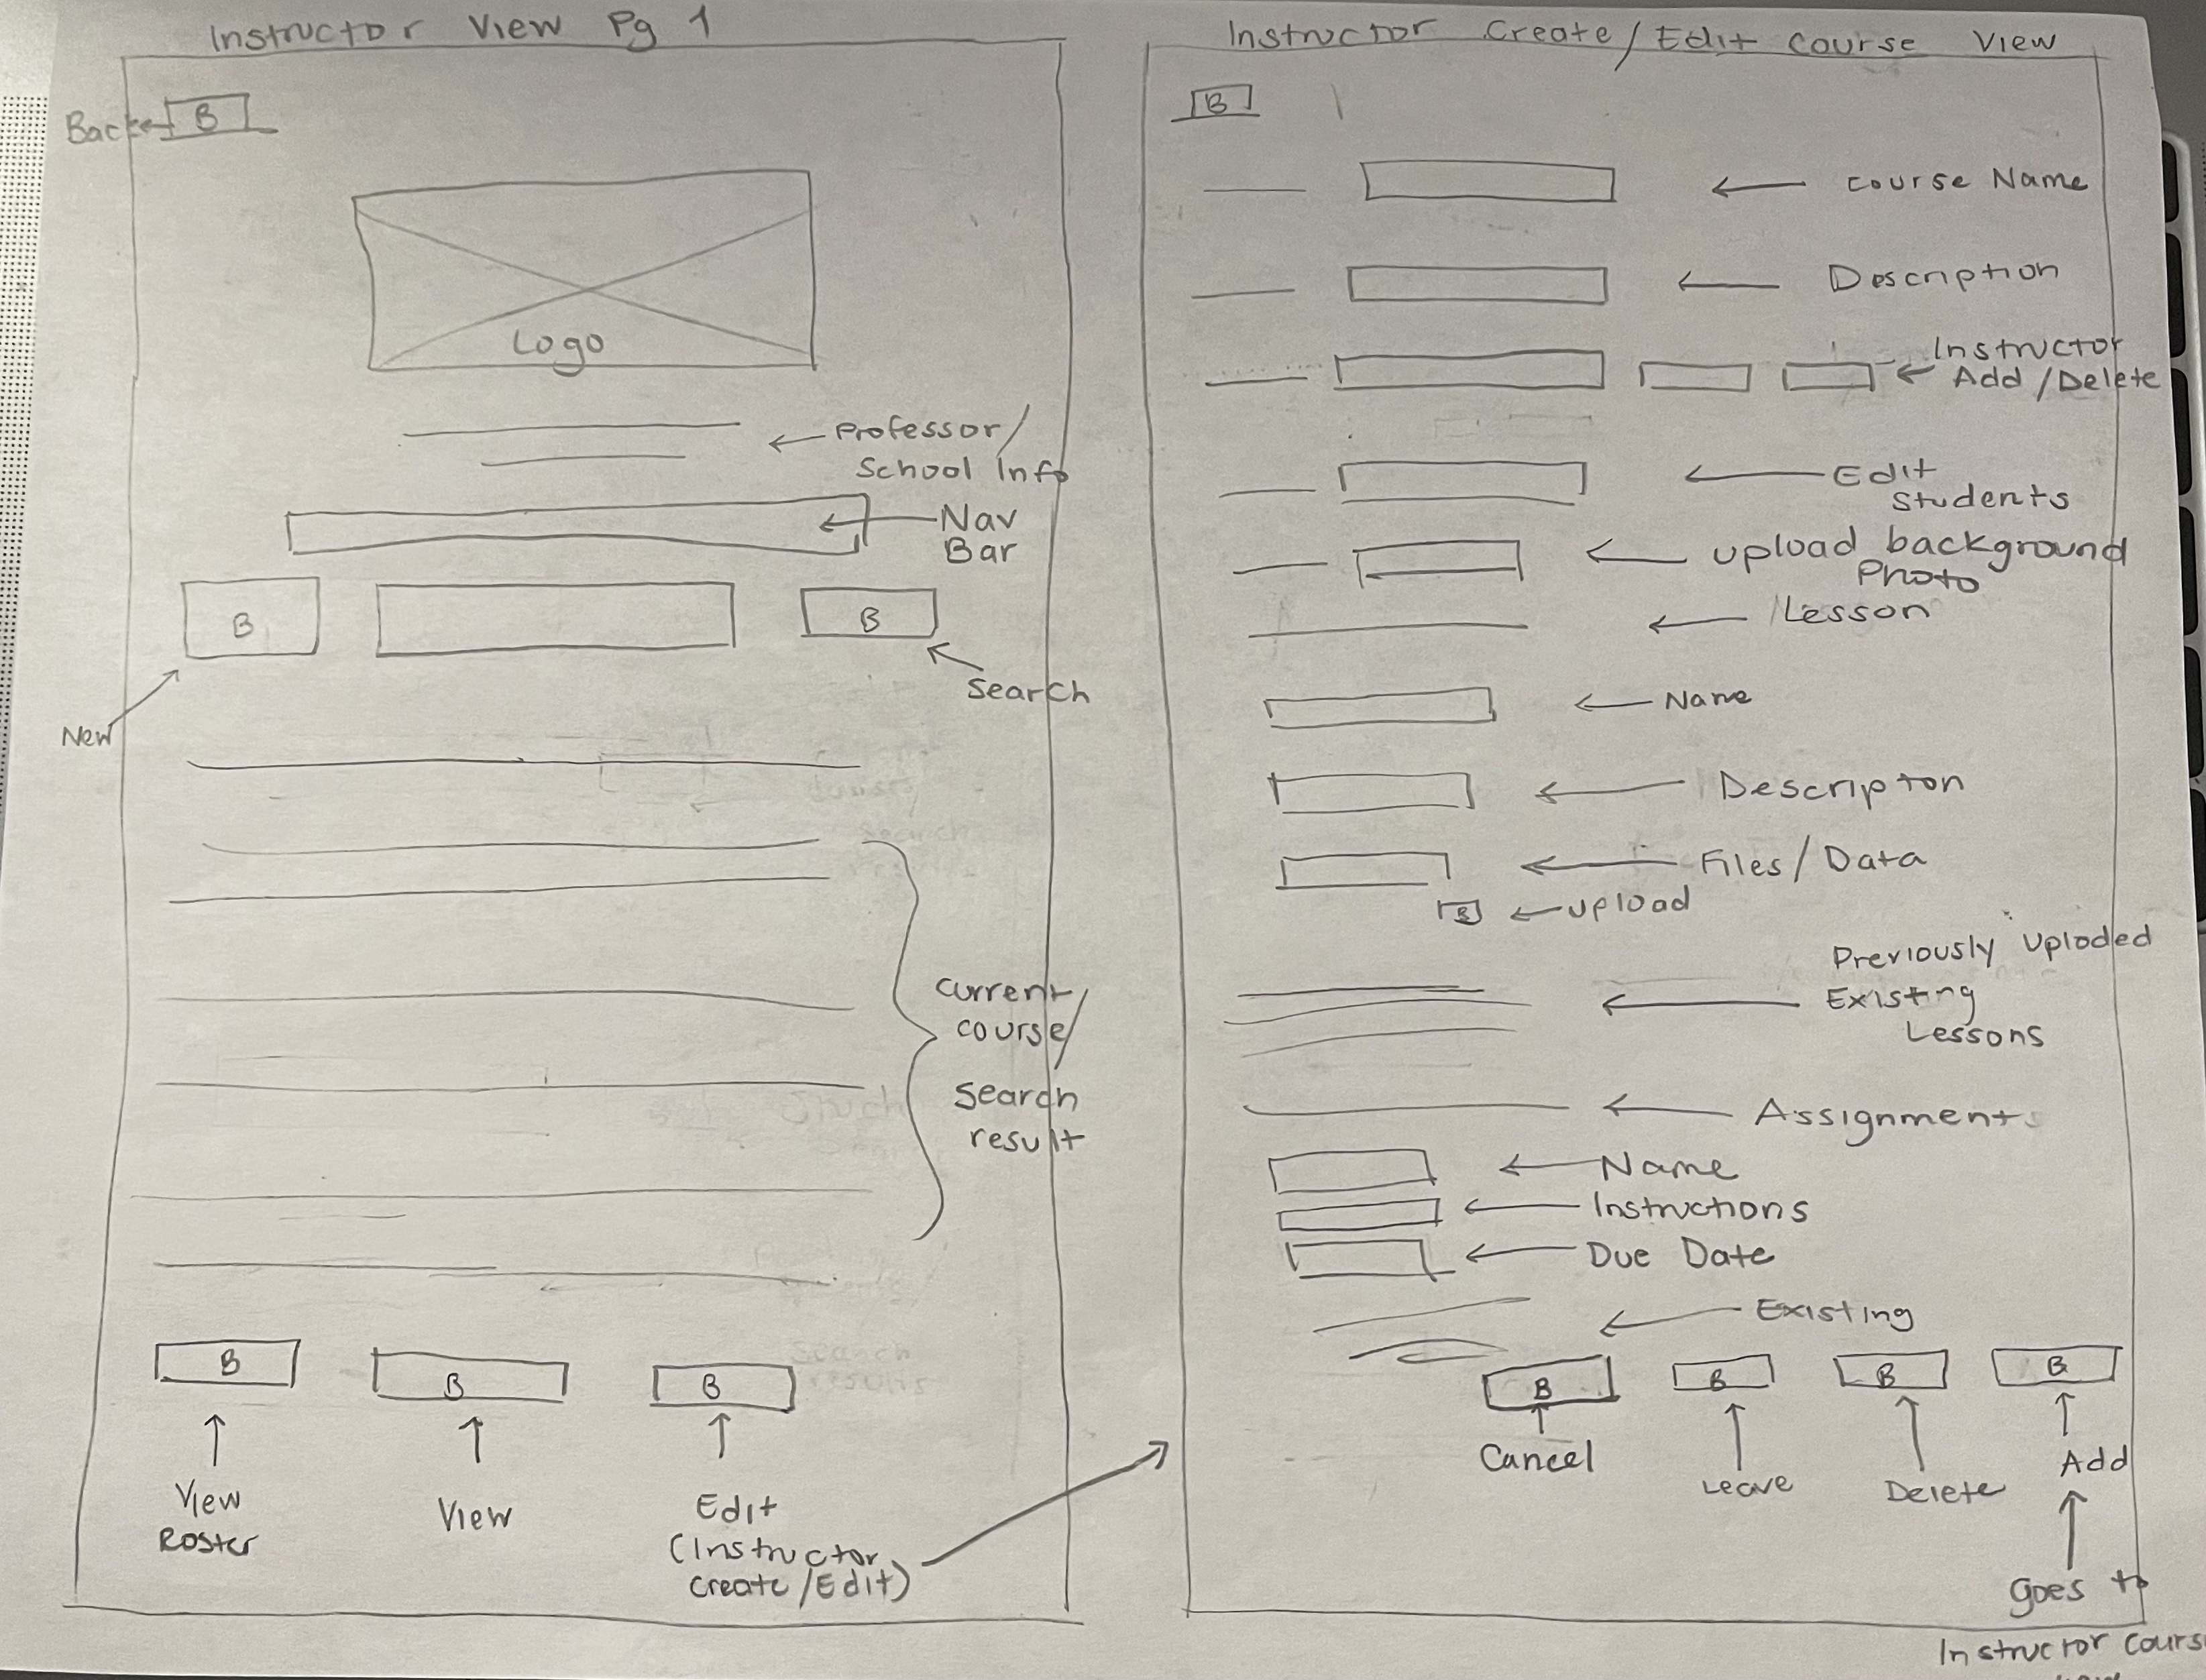 Instructor View Pg 1
Back
B
Logo
Professor/
School Info
Nav
Bar
B
B
Search
New
current/
course/
search
result
B
B
B
View
Roster
View
Edit
(Instructor
create/Edit)
Instructor Create/Edit course View
B
course Name
Description
Instructor
Add/Delete
Edit
Students
upload background
Photo
Lesson
Name
Descripton
Files/Data
B
upload
Previously Uploded
Existing
Lessons
Assignments
Name
Instructions
Due Date
Existing
B
B
B
B
Cancel
Leave
Delete
Add
Goes to
Instructor Cours